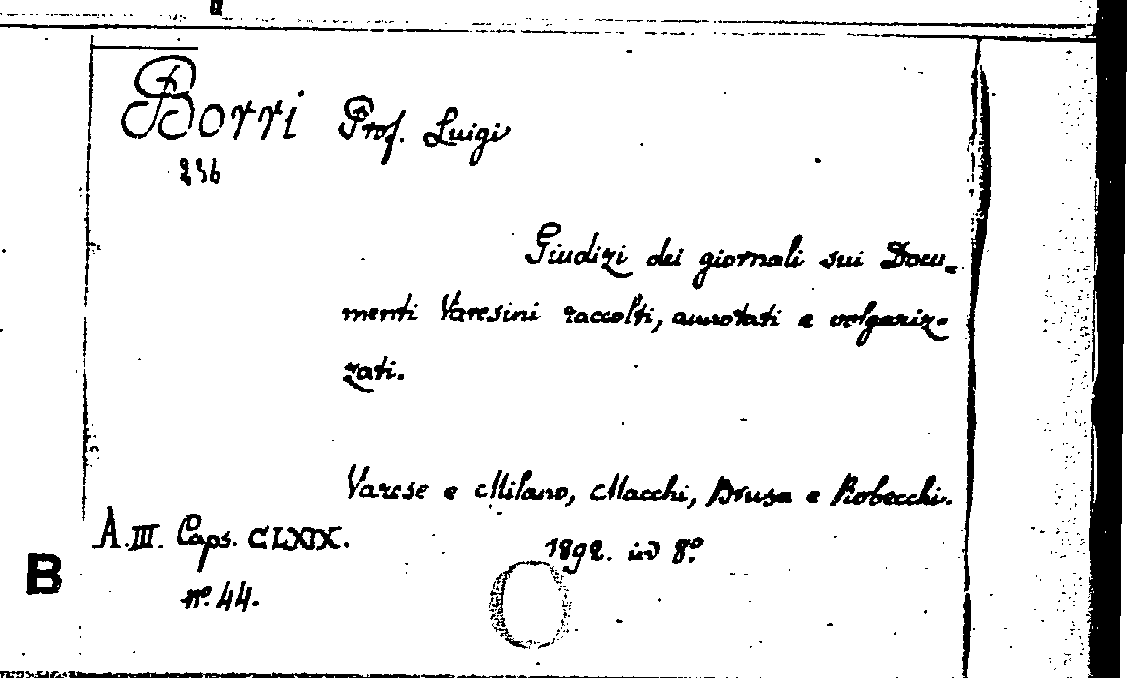 Borri Prof. Luigi
236
Giudizi dei giornali sui Docu-
menti Varesini raccolti, annotati e volgariz-
zati.
Varese e Milano, Macchi, Brusa e Robecchi.
A. III. Caps. CLXIX.
1892. in 8º
B
nº. 44.